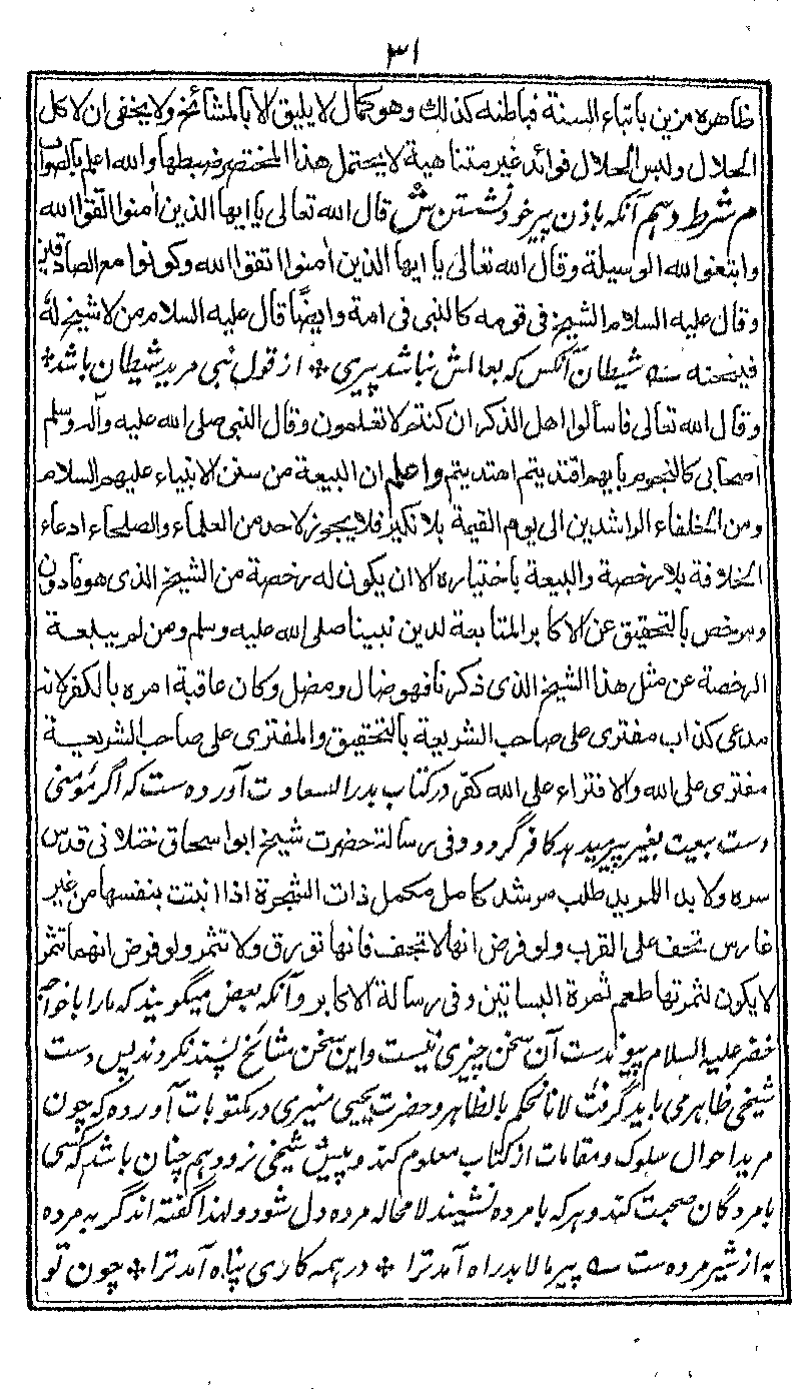 ۳۱
ظاهره مزین باتباء السنة فباطنه کذلك وهو کمال لا یلیق الا بالمشائخ ولا یخفی ان لا کل
الحلال ولبس الحلال فوائد غیر متناهیة لا یحتمل هذا المختصر ضبطها والله اعلم بالصواب
م شرط دهم آنکه باذن پیر خود نشستن ش قال الله تعالی یا ایها الذین اٰمنوا اتقوا الله
وابتغوا الله الوسیلة وقال الله تعالی یا ایها الذین اٰمنوا اتقوا الله وکونوا مع الصادقین
وقال علیه السلام الشیخ فی قومه کالنبی فی امة وایضًا قال علیه السلام من لا شیخ لهٗ
فشیخه شیطان آنکس که بعالمش نباشد پیری * از قول نبی مرید شیطان باشد *
وقال الله تعالی فاسألوا اهل الذکر ان کنتم لا تعلمون وقال النبی صلی الله علیه وآله وسلم
اصحابی کالنجوم بایهم اقتدیتم اهتدیتم واعلم ان البیعة من سنن الانبیاء علیهم السلام
ومن الخلفاء الراشدین الی یوم القیمة بلا نکیر فلا یجوز لاحد من العلماء والصلحاء ادعاء
الخلافة بلا رخصة والبیعة باختیاره الا ان یکون له رخصة من الشیخ الذی هو ماذون
ومرخص بالتحقیق عن الاکابر المتابعة لدین نبینا صلی الله علیه وسلم ومن لم یبلغه
الرخصة عن مثل هذا الشیخ الذی ذکرنا فهو ضال ومضل وکان عاقبة امره بالکفر لانه
مدعی کذاب مفتری علی صاحب الشریعة بالتحقیق والمفتری علی صاحب الشریعة
مفتری علی الله والافتراء علی الله کفر در کتاب بدر السعادت آورده ست که اگر مؤمنی
دست بیعت بغیر پیر میدهد کافر گردد وفی رسالة حضرت شیخ ابو اسحاق ختلانی قدس
سره ولا بد للمرید طلب مرشد کامل مکمل ذات الشجرة اذا انبتت بنفسها من غیر
غارس تجف علی القرب ولو فرض انها لا تجف فانها تورق ولا تثمر ولو فرض انهما تثمر
لا یکون لثمرتها طعم ثمرة البساتین وفی رسالة الاکابر وآنکه بعض میگویند که ما را با خواجه
خضر علیه السلام پیوندست آن سخن چیزی نیست واین سخن مشائخ پسند نکردند پس دست
شیخی ظاهر می باید گرفت لانا نحکم بالظاهر وحضرت یحیی منیری در مکتوبات آورده که چون
مرید احوال سلوک ومقامات از کتاب معلوم کند وپیش شیخی نرود هم چنان باشد که کسی
با مردگان صحبت کند وهر که با مرده نشیند لا محاله مرده دل شود ولهذا گفته اند گربه مرده
به از شیر مرده ست پیر ما لابد راه آمد ترا * در همه کاری پناه آمد ترا * چون تو